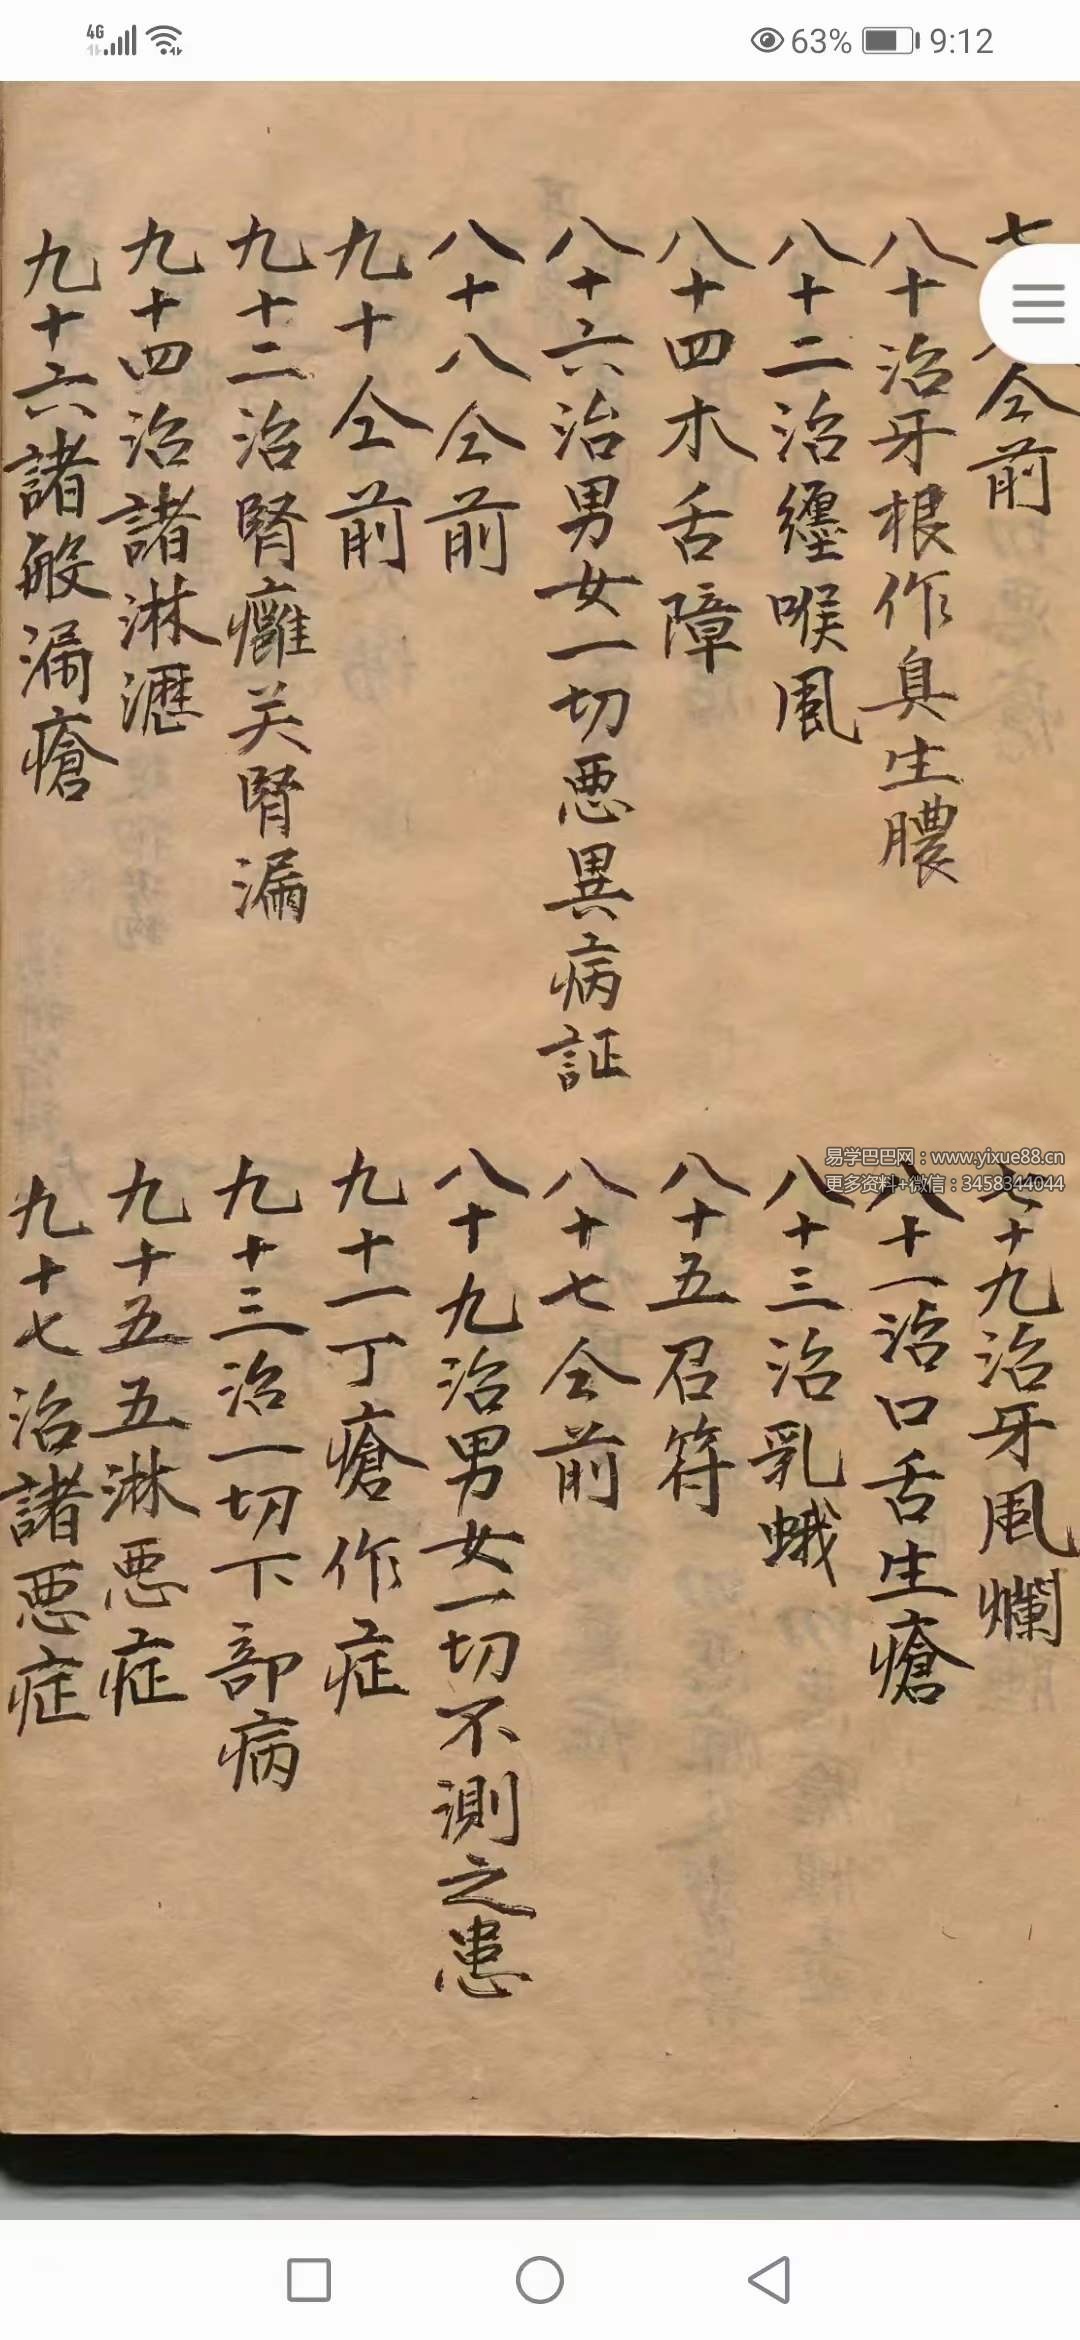 4G 63% 9:12
七 仝前
七十九治牙風爛
八十治牙根作臭生膿
八十一治口舌生瘡
八十二治纏喉風
八十三治乳蛾
八十四木舌障
八十五召符
八十六治男女一切悪異病証
八十七仝前
八十八仝前
八十九治男女一切不測之患
九十仝前
九十一丁瘡作症
九十二治腎癰关腎漏
九十三治一切下部病
九十四治諸淋瀝
九十五五淋悪症
九十六諸般漏瘡
九十七治諸悪症
易学巴巴网：www.yixue88.cn
更多资料+微信：3458344044